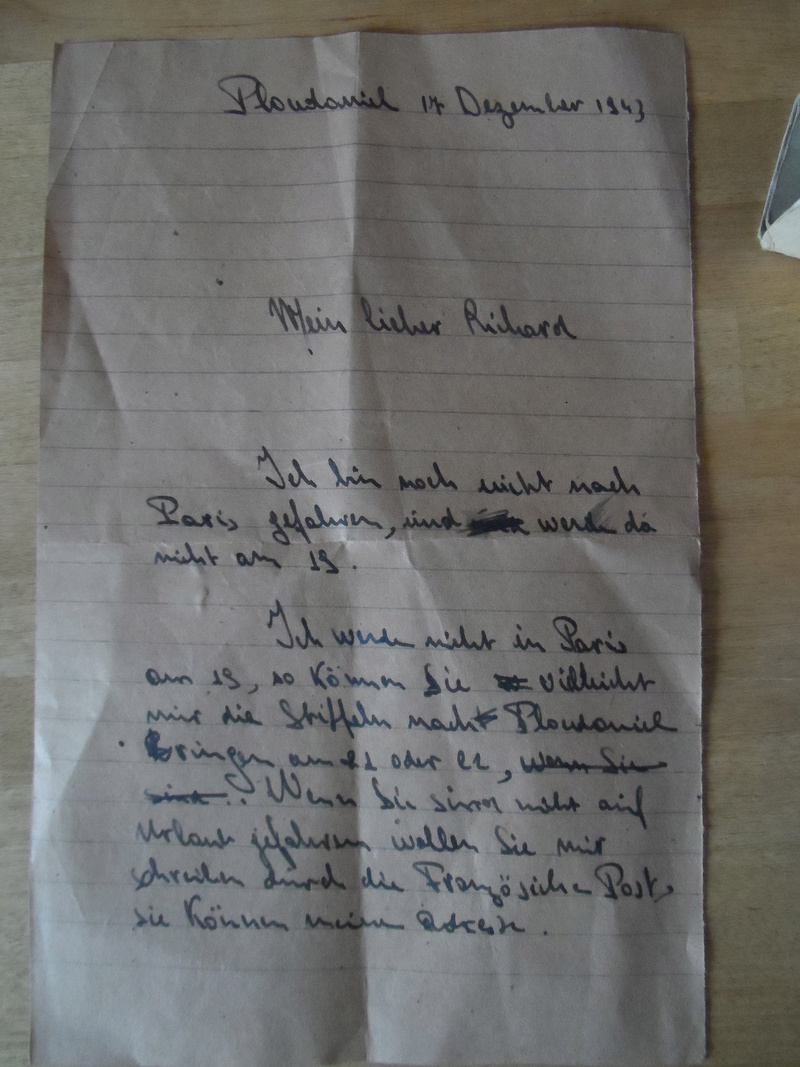 Ploudaniel 17 Dezember 1943
Mein lieber Richard
Ich bin noch nicht nach
Paris gefahren, und werde da
nicht am 19.
Ich werde nicht in Paris
am 19, so können Sie villeicht
mir die Stiffeln nach Ploudaniel
Bringen am 21 oder 22, wenn Sie
sind. Wenn Sie sind nicht auf
Urlaub gefahren wollen Sie mir
schreiben durch die Französiche Post,
sie können meine Adresse.